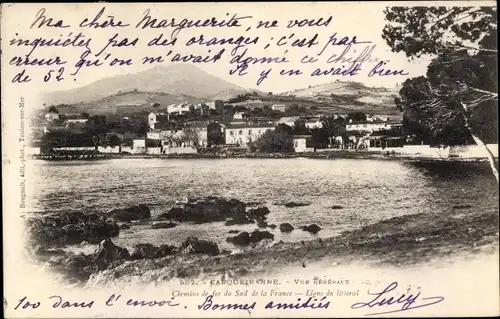 Ma chère Marguerite, ne vous
inquiétez pas des oranges; c'est par
erreur qu'on m'avait dit ce chiffre
de 52. Il y en avait bien
A. Bougault, édit.-phot. - Toulon-sur-Mer
502. CARQUEIRANNE. - VUE GÉNÉRALE.
Chemins de fer du Sud de la France - Ligne du littoral
100 dans l'envoi. Bonnes amitiés Lucy